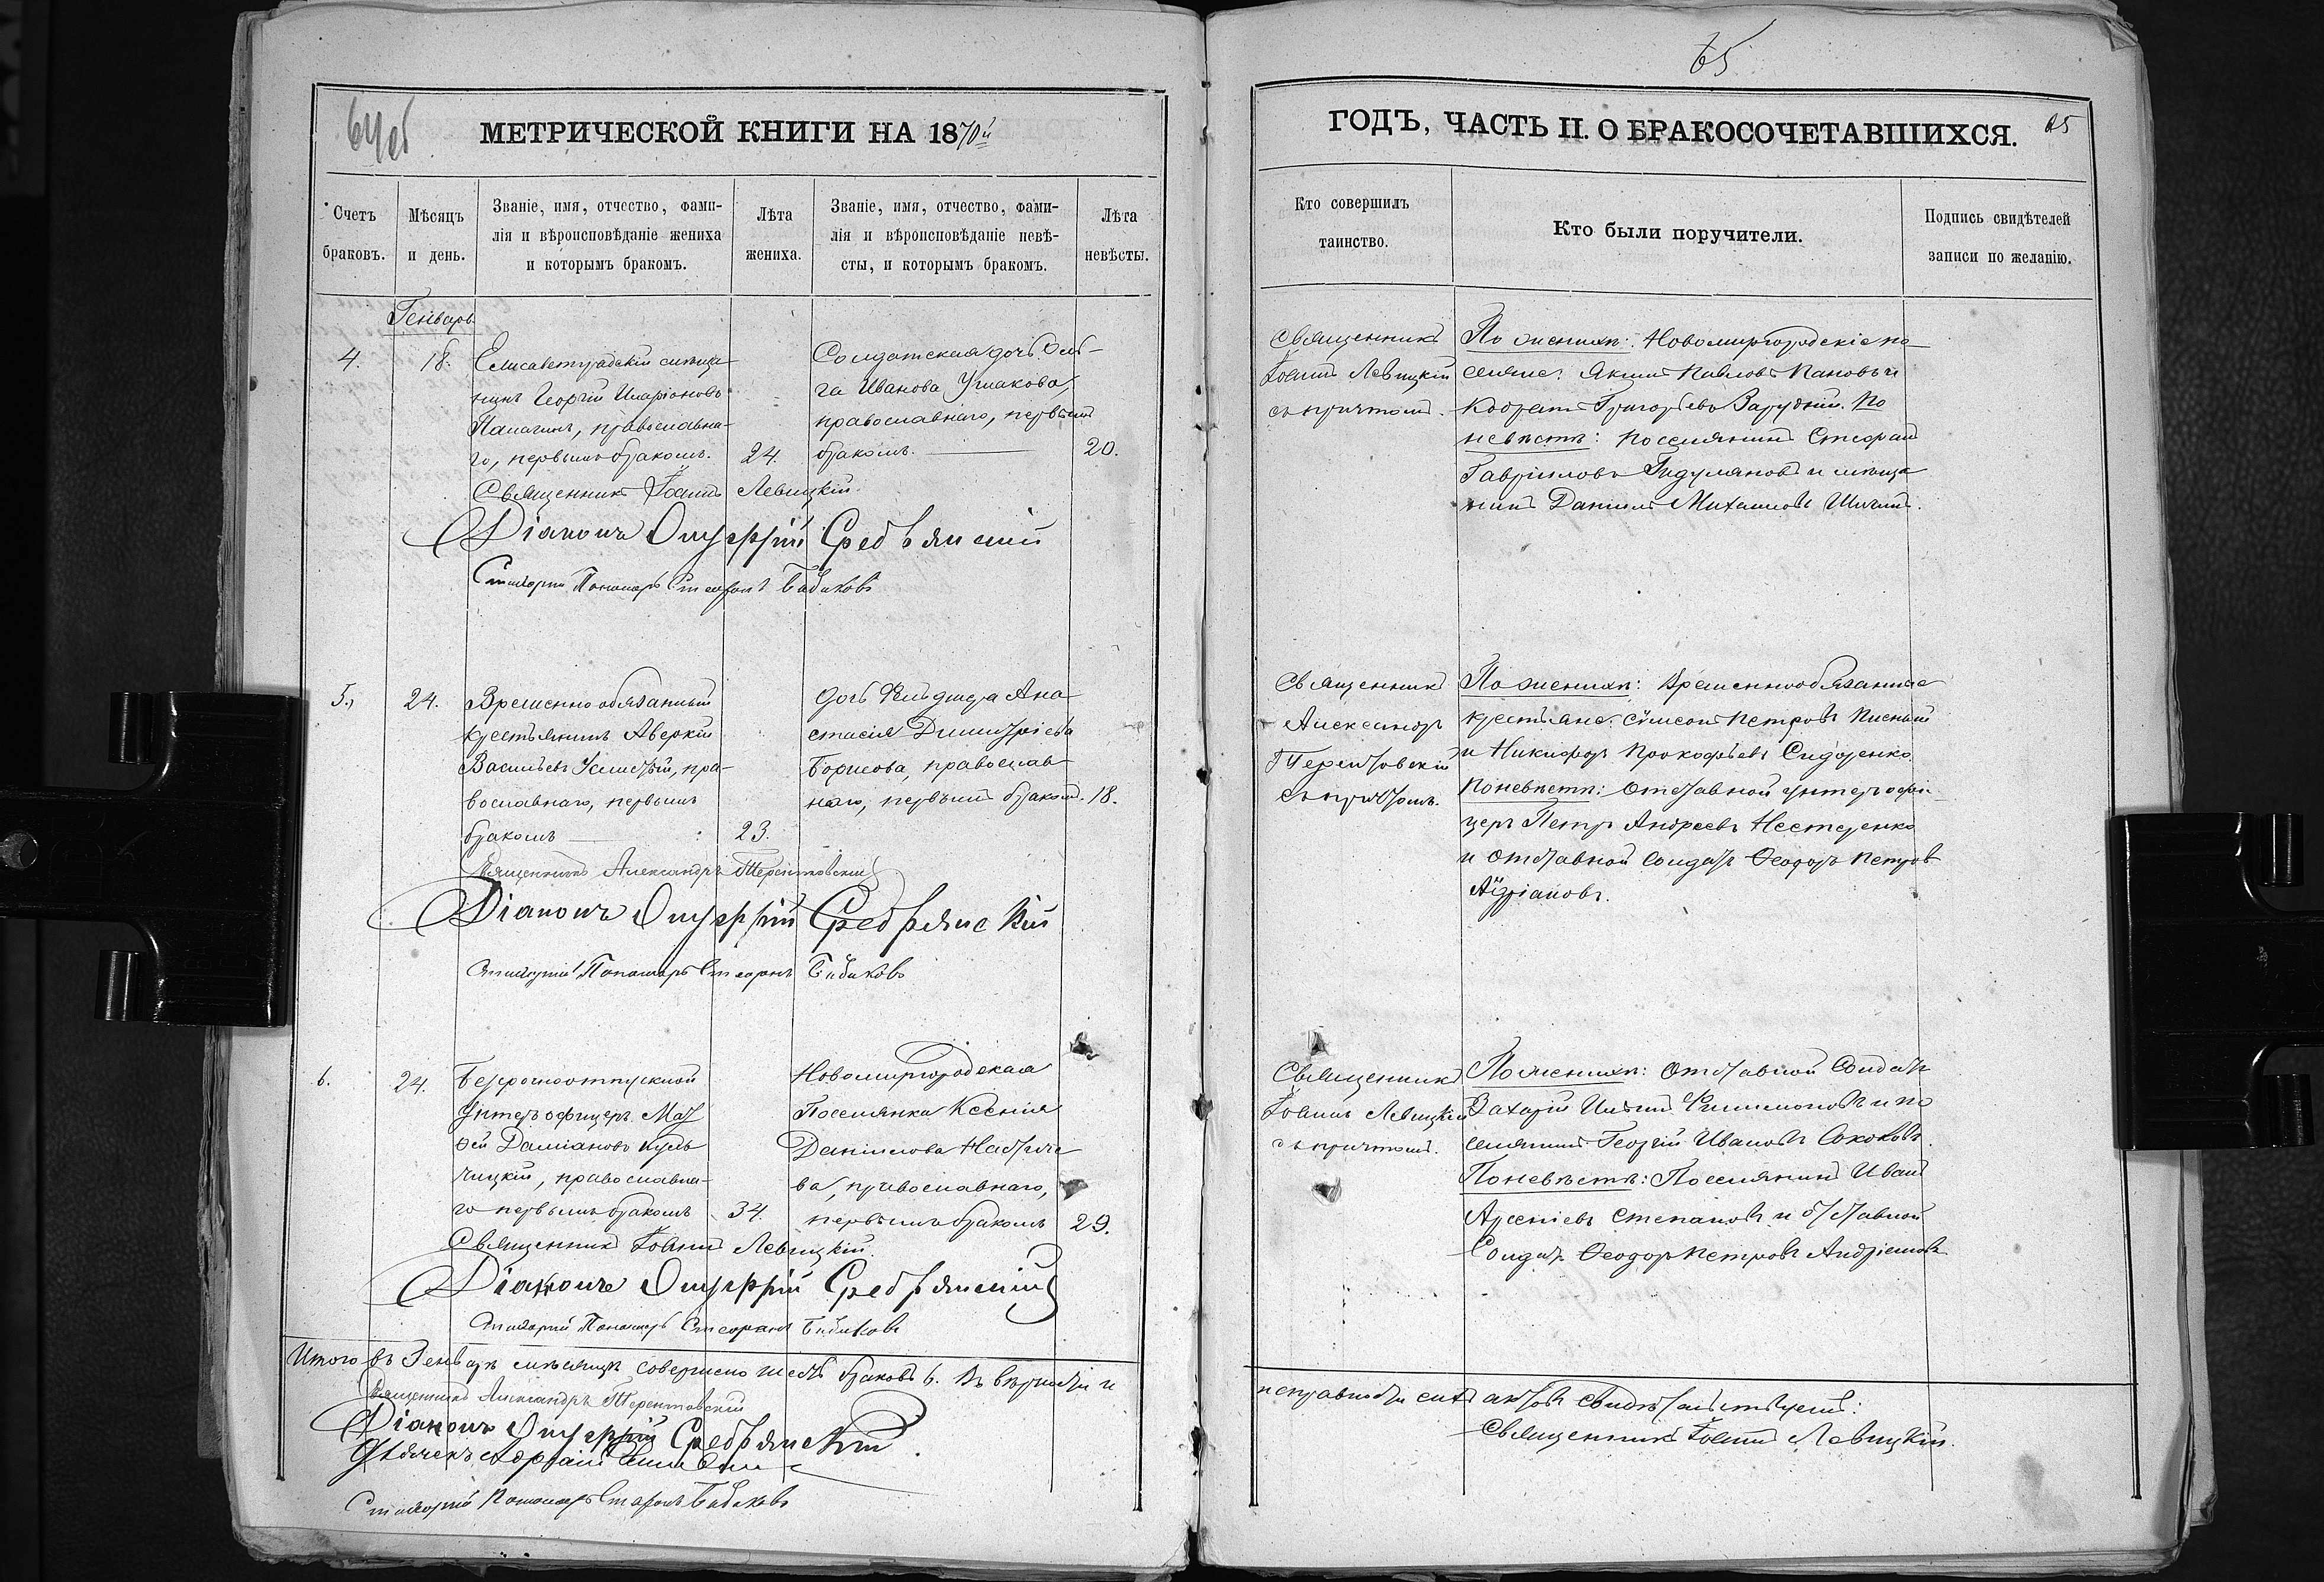 64об
МЕТРИЧЕСКОЙ КНИГИ НА 1870й
Счетъ
браковъ.
Мѣсяцъ
и день.
Званіе, имя, отчество, фами-
лія и вѣроисповѣданіе жениха
и которымъ бракомъ.
Лѣта
жениха.
Званіе, имя, отчество, фами-
лія и вѣроисповѣданіе невѣ-
сты, и которымъ бракомъ.
Лѣта
невѣсты.
Генварь
4.
18.
Елисаветградскій мѣща-
нинъ Георгій Иларіоновъ
православна-
го, первымъ бракомъ.
24.
Солдатская дочь Оль-
га Иванова Ушакова,
православнаго, первымъ
бракомъ.
20.
Священникъ Іоаннъ Левицкій.
Діаконъ Онуфрій Сребрянскій
Стихарный Пономарь Стефанъ Бабаковъ
5.
24.
Временно обязанный
крестьянинъ Аверкій
Васильевъ пра-
вославнаго, первымъ
бракомъ
23.
дочь Ана-
стасія Димитріева
Борисова, православ-
наго, первымъ бракомъ.
18.
Священникъ Александръ Терентовскій
Діаконъ Онуфрій Сребрянскій
Стихарный Пономарь Стефанъ Бабаковъ
6.
24.
Безсрочноотпускной
Унтеръ офицеръ Мат-
ѳей Даміановъ Куль-
чицкій, православна-
го первымъ бракомъ
34.
Новомиргородская
Поселянка Ксенія
Даніилова
ва, православнаго,
первымъ бракомъ
29.
Священникъ Іоаннъ Левицкій.
Діаконъ Онуфрій Сребрянскій
Стихарный Пономарь Стефанъ Бабаковъ
Итого въ Генварѣ мѣсяцѣ совершено шесть браковъ 6. Въ вѣрности и
Священникъ Александръ Терентовскій
Діаконъ Онуфрій Сребрянскій
Дьячекъ
Стихарный Пономарь Стефанъ Бабаковъ
65
ГОДЪ, ЧАСТЬ II. О БРАКОСОЧЕТАВШИХСЯ.
65
Кто совершилъ
таинство.
Кто были поручители.
Подпись свидѣтелей
записи по желанію.
Священникъ
Іоаннъ Левицкій
съ причтомъ.
По женихѣ: Новомиргородскіе по-
селяне: Акимъ Павловъ Пановъ и
Кодратъ Григорьевъ Зарудній. По
невѣстѣ: поселянинъ Стефанъ
Гавріиловъ Гидуляновъ и мѣща-
нинъ Даніилъ Михаиловъ
Священникъ
Александръ
Терентовскій
съ причтомъ.
По женихѣ: временнообязанные
крестьяне: Сѵмеонъ Петровъ Писный
и Никифоръ Прокофьевъ Сидоренко
По невѣстѣ: отставной унтеръ офи-
церъ Петръ Андреевъ Нестеренко
и отставной солдатъ Ѳеодоръ Петровъ
Андріановъ.
Священникъ
Іоаннъ Левицкій
съ причтомъ.
По женихѣ: отставной Солдатъ
Захарій Ильинъ Филимоновъ и по-
селянинъ Георгій Ивановъ Соколовъ.
По невѣстѣ: Поселянинъ Иванъ
Арсеніевъ Степановъ и отставной
Солдатъ Ѳеодоръ Петровъ Андріановъ
исправности сихъ актовъ свидѣтельствуемъ:
Священникъ Іоаннъ Левицкій.